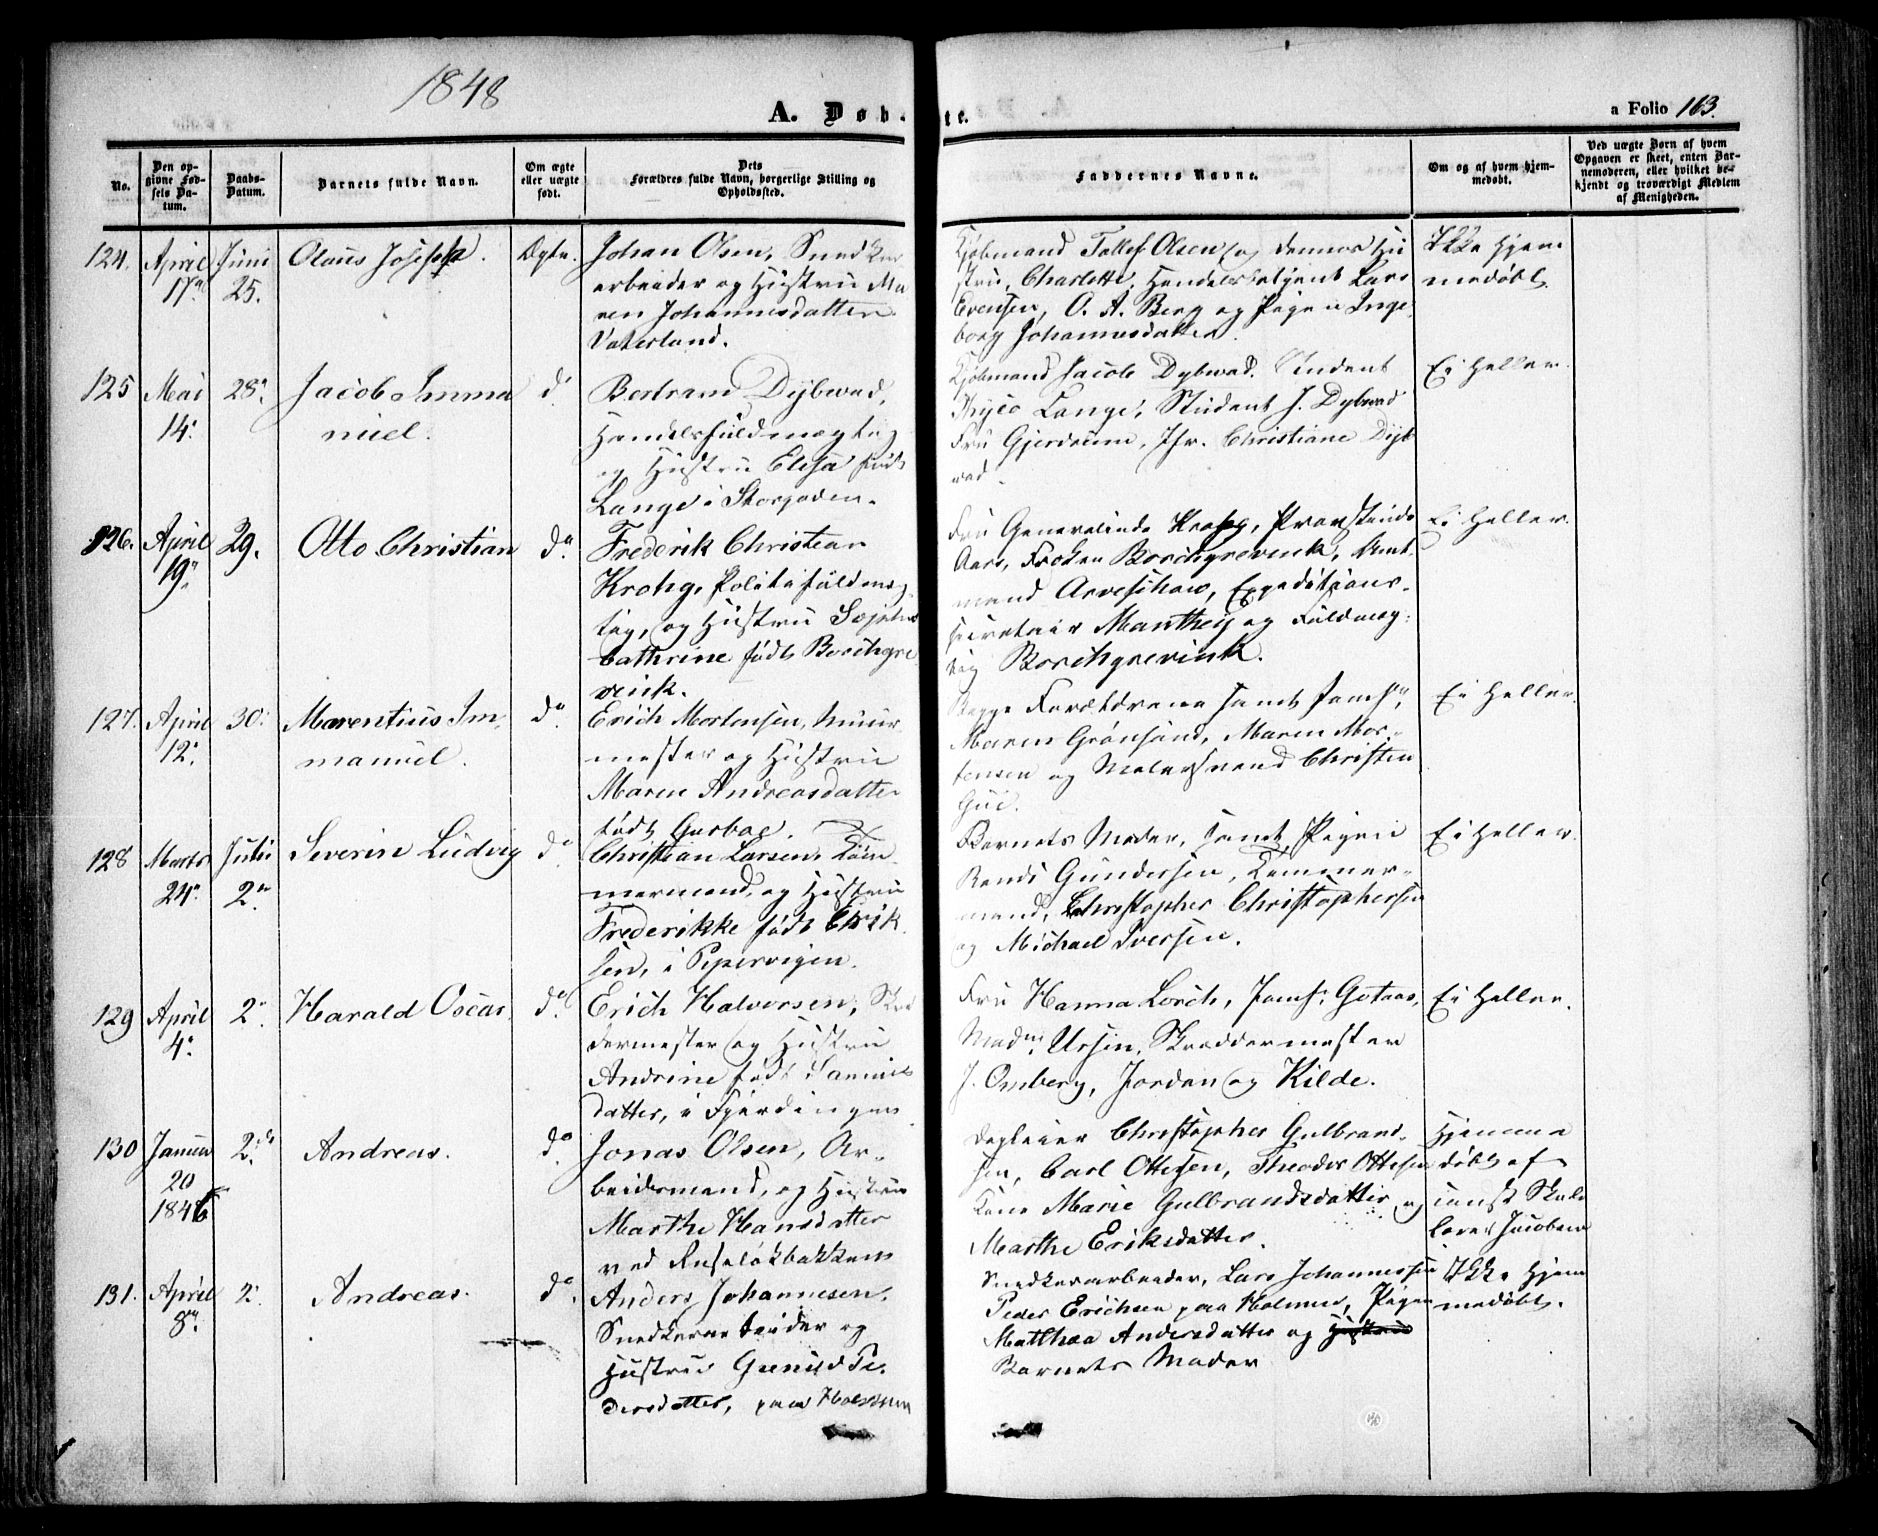 1848
A. Døb-
te.
a Folio 163.
No.
Den op-
givne Fød-
sels Da-
tum.
Daabs-
Datum.
Barnets fulde Navn.
Om ægte
eller uægte
født.
Dets
Forældres fulde Navn, borgerlige Stilling og
Opholdssted.
Faddernes Navne.
Om og af hvem hjem-
medøbt.
Ved uægte Børn af hvem
Opgaven er skeet, enten Bar-
nemoderen, eller hvilket be-
kjendt og troværdigt Medlem
af Menigheden.
124.
April
17de
Juni
25.
Olaus Joseph.
Ægte.
Johan Olsen, Snedker
arbeider og Hustru Ma
ren Johannesdatter
Vaterland.
Kjøbmand Tollef Olsen og dennes Hu
stru, Charlotte, Handelsbetjent Lars
Evensen, O. A. Berg og Pigen Inge
borg Johannesdatter.
Ikke Hjem
medøbt
125
Mai
14.
28.
Jacob Imma
nuel.
do
Bertram Dybwad,
Handelsfuldmægtig
og Hustru Elisa født
Lange i Storgaden.
Kjøbmand Jacob Dybwad. Student
Thyco Lange, Student J. Dybwad
Fru Gjerdrum, Jfr. Christiane Dyb
wad.
Ei Heller.
126.
April
19.
29.
Otto Christian
do
Frederik Christian
Krohg, Politifuldmæg
tig, og Hustru Sophie
Cathrine født Borchgre
vink.
Fru Generalinde Krohg, Provstinde
Aars, Frøken Borchgrevink, Amt
mand Arveschow, Expeditions-
secretair Manthey og Fuldmæg-
tig Borchgrevink.
Ei Heller.
127.
April
12.
30.
Marentius Im-
manuel.
do
Erich Mortensen, Muur
mester og Hustru
Maren Andreasdatter
født
Begge Forældrene samt Jomfr.
Maren Grønsund, Maren Mor-
tensen og Malersvend Christen
Gui.
Ei Heller.
128
Marts
24.
Julii
2.
Severin Ludvig
do
Christian Larsen, Tøm
mermand, og Hustru
Frederikke født Erik
sen, i Pipervigen.
Barnets Moder, samt Pigen
Randi Gundersen, Tømmer-
mand, Christopher Christophersen
og Michael Iversen.
Ei Heller.
129
April
4.
2.
Harald Oscar.
do
Erich Halvorsen, Skræ
dermester og Hustru
Andrine født Samuels
datter, i Fjerdingen
Fru Hanna Lorch, Jomfr. Gotaas,
Madm. Ursin, Skræddermester
J. Omberg, Jordan og Kilde.
Ei Heller.
130
Januar
20
1846
2.
Andreas.
do
Jonas Olsen, Ar-
beidsmand, og Hustru
Marthe Hansdatter
ved Ruseløkbakken
Dagleier Christopher Gulbrand-
sen, Carl Ottesen, Theodor Ottesen
Kone Marie Gulbrandsdatter, og
Marthe Eriksdatter.
Hjemme
døbt af
Skole
lærer Jacobsen
131.
April
8.
2.
Andreas.
do
Anders Johannesen,
Snedkerarbeider og
Hustru Gunild Pe-
dersdatter, paa Holmen
Snedkerarbeider, Lars Johannessen
Peder Erichsen paa Holmen, Pigen
Matthea Andersdatter og Hustru
Barnets Moder
Ikke Hjem
medøbt.